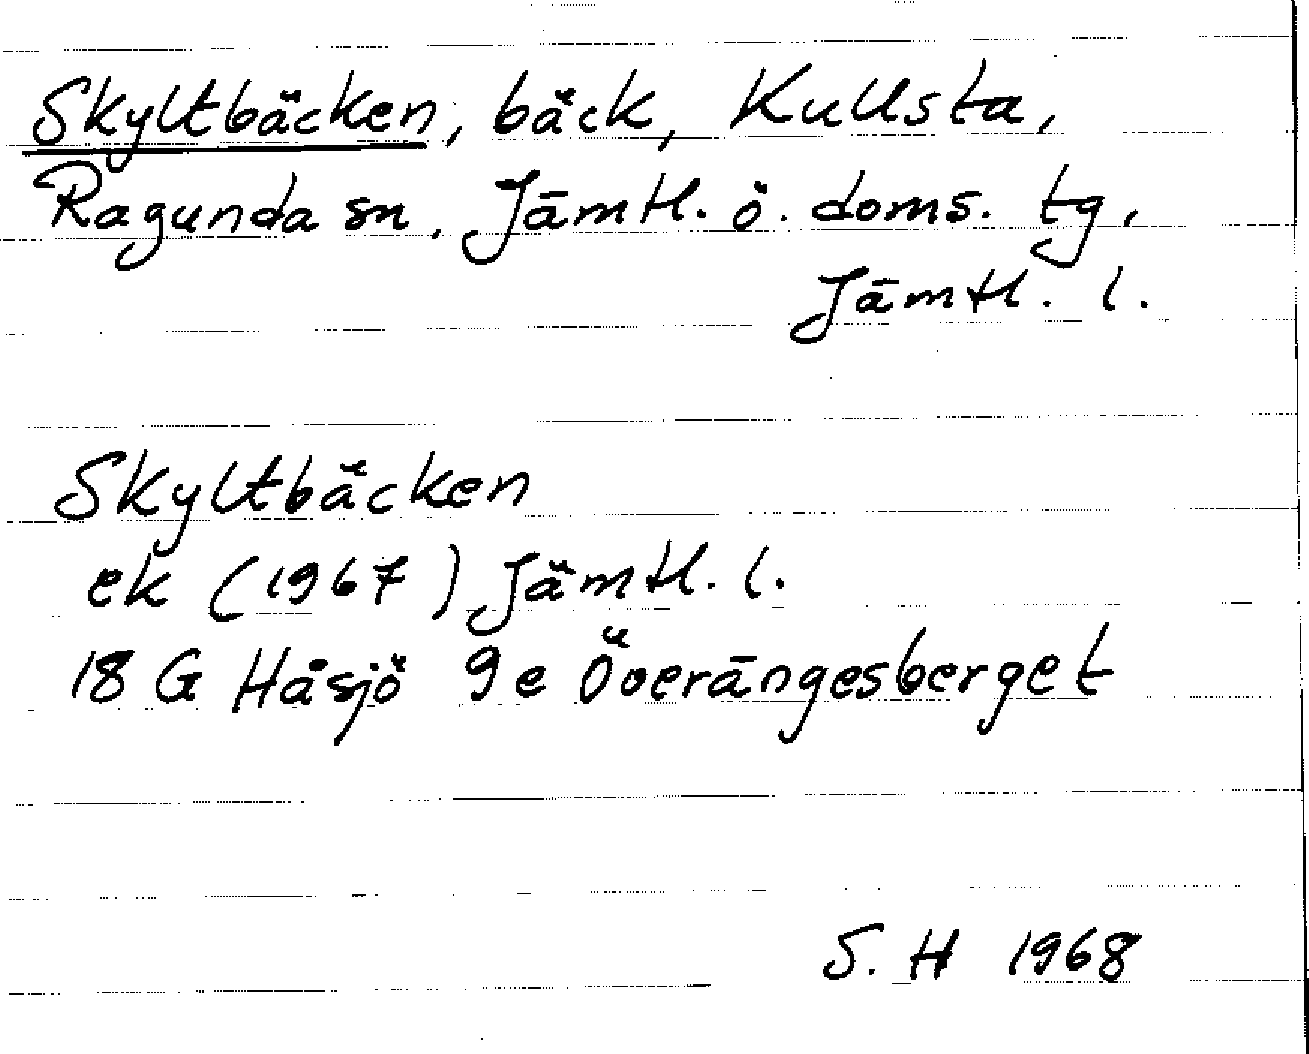 Skyltbäcken, bäck, Kullsta,
Ragunda sn, Jämtl. ö. doms. tg,
Jämtl. l.
Skyltbäcken
ek (1967) Jämtl. l.
18 G Håsjö 9e Överängesberget
S. H 1968